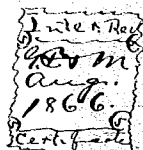 Inter Rev
M
Aug.
1866.
Certificate